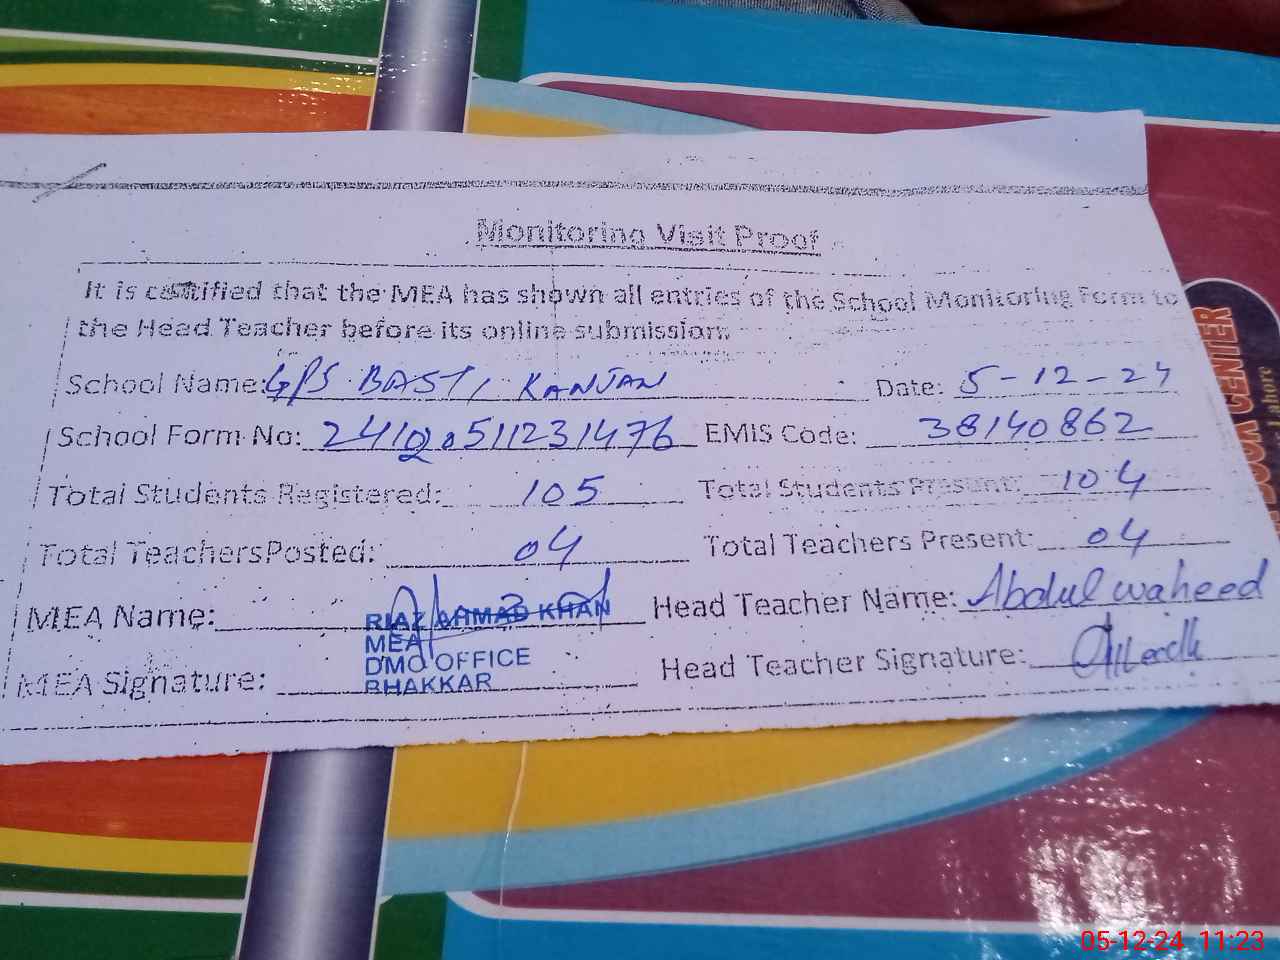 Monitoring Visit Proof
It is certified that the MEA has shown all entries of the School Monitoring Form to
the Head Teacher before its online submission.
School Name: GPS BASTI KANJAN Date: 5-12-24
School Form No: 24120511231476 EMIS Code: 38140862
Total Students Registered: 105 Total Students Present: 104
Total Teachers Posted: 04 Total Teachers Present: 04
MEA Name: RIAZ AHMAD KHAN Head Teacher Name: Abdul waheed
MEA
DMO OFFICE
MEA Signature: BHAKKAR Head Teacher Signature:
BOOK CENTER
Lahore
05-12-24 11:23